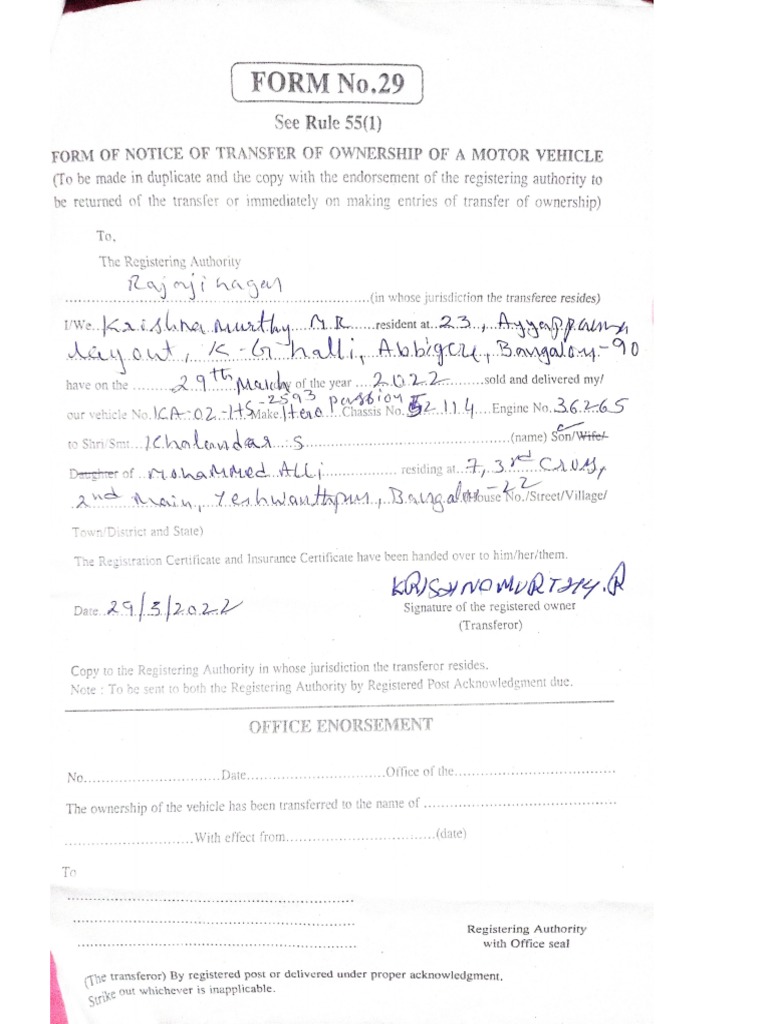 FORM No.29
See Rule 55(1)
FORM OF NOTICE OF TRANSFER OF OWNERSHIP OF A MOTOR VEHICLE
(To be made in duplicate and the copy with the endorsement of the registering authority to
be returned of the transfer or immediately on making entries of transfer of ownership)
To,
The Registering Authority
Rajajinagar
(in whose jurisdiction the transferee resides)
I/We Krishna murthy M R resident at 23, Ayyappa
layout, K-G-halli, Abbigere, Bangalore-90
have on the 29th March day of the year 2022 sold and delivered my/
our vehicle No. KA-02-HS-2593 Make Hero passion Chassis No. 52114 Engine No. 36265
to Shri/Smt Khalandar S (name) Son/Wife/
Daughter of Mohammed Alli residing at 7, 3rd Cross,
2nd Main, Yeshwanthpur, Bangalore-22 (House No./Street/Village/
Town/District and State)
The Registration Certificate and Insurance Certificate have been handed over to him/her/them.
KRISHNAMURTHY.R
Date 29/3/2022 Signature of the registered owner
(Transferor)
Copy to the Registering Authority in whose jurisdiction the transferor resides.
Note : To be sent to both the Registering Authority by Registered Post Acknowledgment due.
OFFICE ENORSEMENT
No. Date Office of the
The ownership of the vehicle has been transferred to the name of
With effect from (date)
To
Registering Authority
with Office seal
(The transferor) By registered post or delivered under proper acknowledgment.
Strike out whichever is inapplicable.